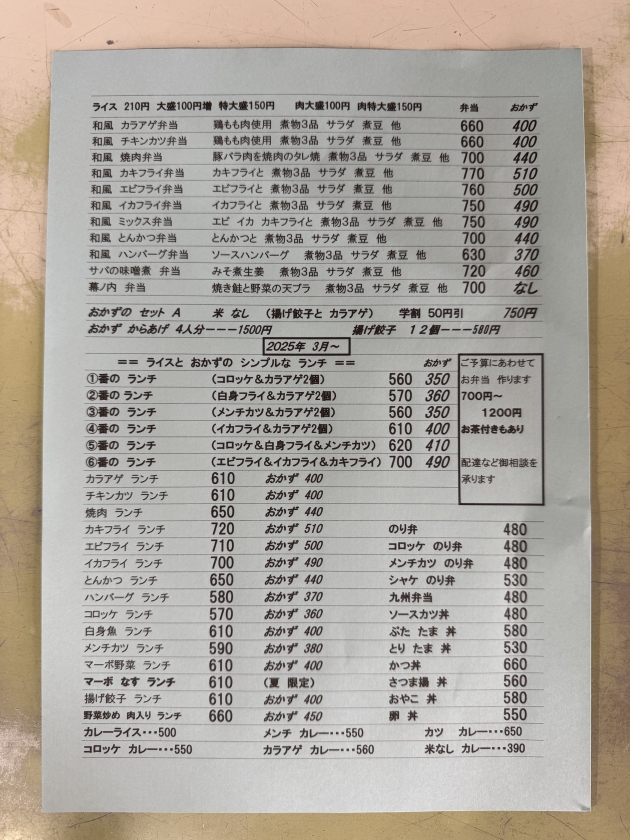 ライス 210円 大盛100円増 特大盛150円 肉大盛100円 肉特大盛150円 弁当 おかず
和風 カラアゲ弁当 鶏もも肉使用 煮物3品 サラダ 煮豆 他 660 400
和風 チキンカツ弁当 鶏もも肉使用 煮物3品 サラダ 煮豆 他 660 400
和風 焼肉弁当 豚バラ肉を焼肉のタレ焼 煮物3品 サラダ 煮豆 他 700 440
和風 カキフライ弁当 カキフライと 煮物3品 サラダ 煮豆 他 770 510
和風 エビフライ弁当 エビフライと 煮物3品 サラダ 煮豆 他 760 500
和風 イカフライ弁当 イカフライと 煮物3品 サラダ 煮豆 他 750 490
和風 ミックス弁当 エビ イカ カキフライと 煮物3品 サラダ 煮豆 他 750 490
和風 とんかつ弁当 とんかつと 煮物3品 サラダ 煮豆 他 700 440
和風 ハンバーグ弁当 ソースハンバーグ 煮物3品 サラダ 煮豆 他 630 370
サバの味噌煮 弁当 みそ煮生姜 煮物3品 サラダ 煮豆 他 720 460
幕ノ内 弁当 焼き鮭と野菜の天プラ 煮物3品 サラダ 煮豆 他 700 なし
おかずの セット A 米 なし (揚げ餃子と カラアゲ) 学割 50円引 750円
おかず からあげ 4人分ーーー1500円 揚げ餃子 12個ーーー580円
2025年 3月~
== ライスと おかずの シンプルな ランチ == おかず
①番の ランチ (コロッケ&カラアゲ2個) 560 350
②番の ランチ (白身フライ&カラアゲ2個) 570 360
③番の ランチ (メンチカツ&カラアゲ2個) 560 350
④番の ランチ (イカフライ&カラアゲ2個) 610 400
⑤番の ランチ (コロッケ&白身フライ&メンチカツ) 620 410
⑥番の ランチ (エビフライ&イカフライ&カキフライ) 700 490
ご予算にあわせて
お弁当 作ります
700円~
1200円
お茶付きもあり
配達など御相談を
承ります
カラアゲ ランチ 610 おかず 400
チキンカツ ランチ 610 おかず 400
焼肉 ランチ 650 おかず 440
カキフライ ランチ 720 おかず 510 のり弁 480
エビフライ ランチ 710 おかず 500 コロッケ のり弁 480
イカフライ ランチ 700 おかず 490 メンチカツ のり弁 480
とんかつ ランチ 650 おかず 440 シャケ のり弁 530
ハンバーグ ランチ 580 おかず 370 九州弁当 480
コロッケ ランチ 570 おかず 360 ソースカツ丼 480
白身魚 ランチ 610 おかず 400 ぶた たま 丼 580
メンチカツ ランチ 590 おかず 380 とり たま 丼 530
マーボ野菜 ランチ 610 おかず 400 かつ丼 660
マーボ なす ランチ 610 (夏 限定) さつま揚 丼 560
揚げ餃子 ランチ 610 おかず 400 おやこ 丼 580
野菜炒め 肉入り ランチ 660 おかず 450 卵 丼 550
カレーライス・・・500 メンチ カレー・・・550 カツ カレー・・・650
コロッケ カレー・・・550 カラアゲ カレー・・・560 米なし カレー・・・390